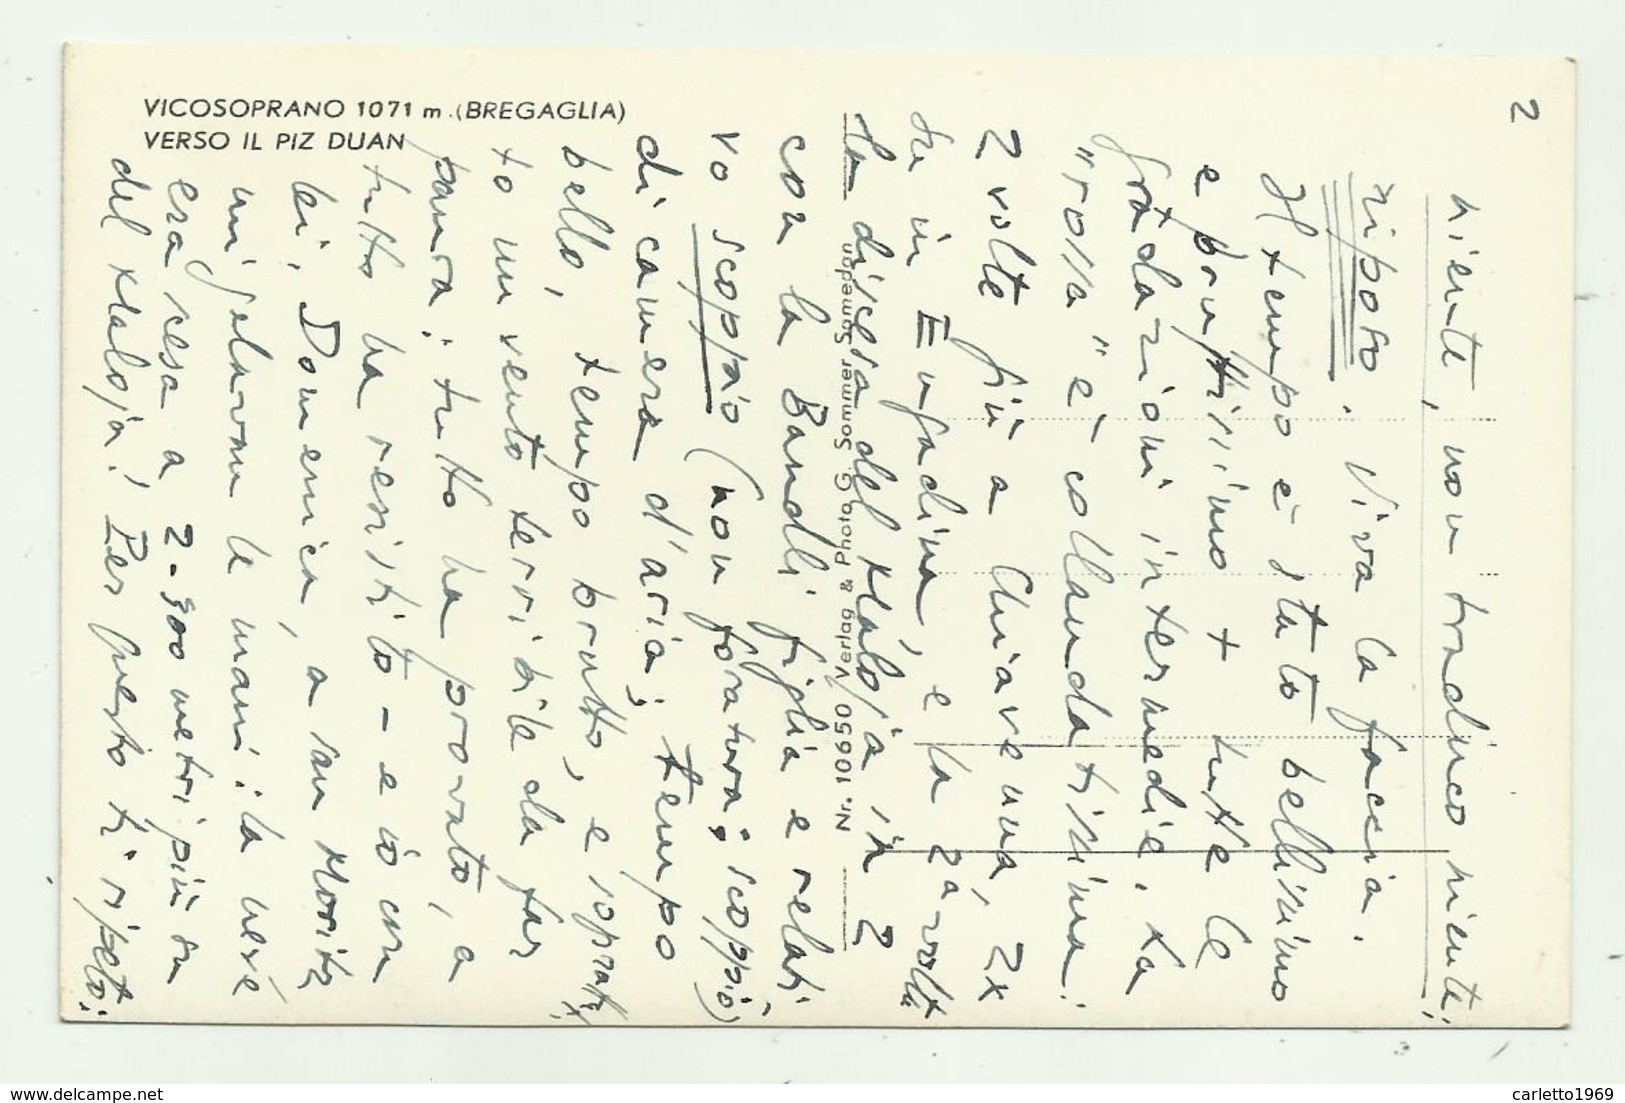 VICOSOPRANO 1071 m. (BREGAGLIA)
VERSO IL PIZ DUAN
Nr. 10650 Verlag & Photo G. Sommer Samedan
2
niente, non traduco niente;
riposo. Viva la faccia.
Il tempo è stato bellissimo
e bruttissimo + tutte le
gradazioni intermedie. La
"rossa" è collaudatissima:
2 volte fin a Chiavenna, 2x
su in Engadina, e la 2ª volta
la discesa del Maloja in 2
con la Bandli figlia e relati
vo scoppio (non foratura; scoppio)
di camera d'aria; tempo
bello, tempo brutto, e soprat
to un vento terribile da far
paura: tutto ha provato, a
tutto ha resistito - e io con
lei. Domenica, a San Moritz
mi gelavano le mani: la neve
era scesa a 2-300 metri più su
del Maloja! Per questo ti ripeto:
carletto1969